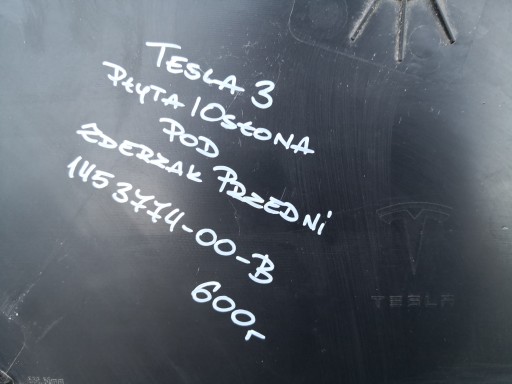 TESLA 3
PŁYTA / OSŁONA
POD
ZDERZAK PRZEDNI
1453774-00-B
600,-
TESLA